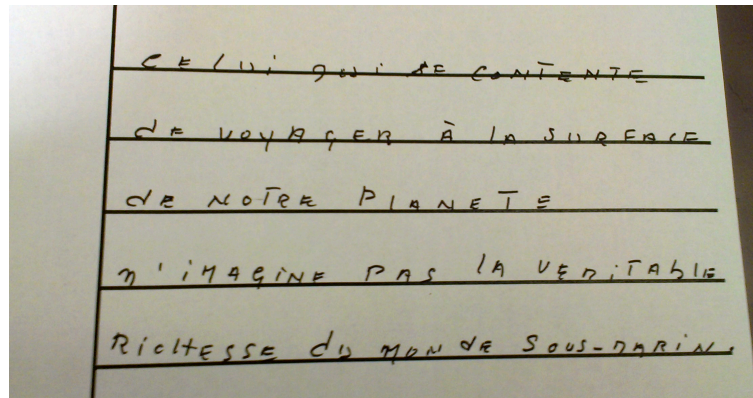 CELUI qui SE CONTENTE
de VOYAGER À lA SURFACE
de NOTRE PLANETE
n'iMAGiNE PAS lA VERiTAblE
RicHESSE du MONdE SOUS-MARiN.